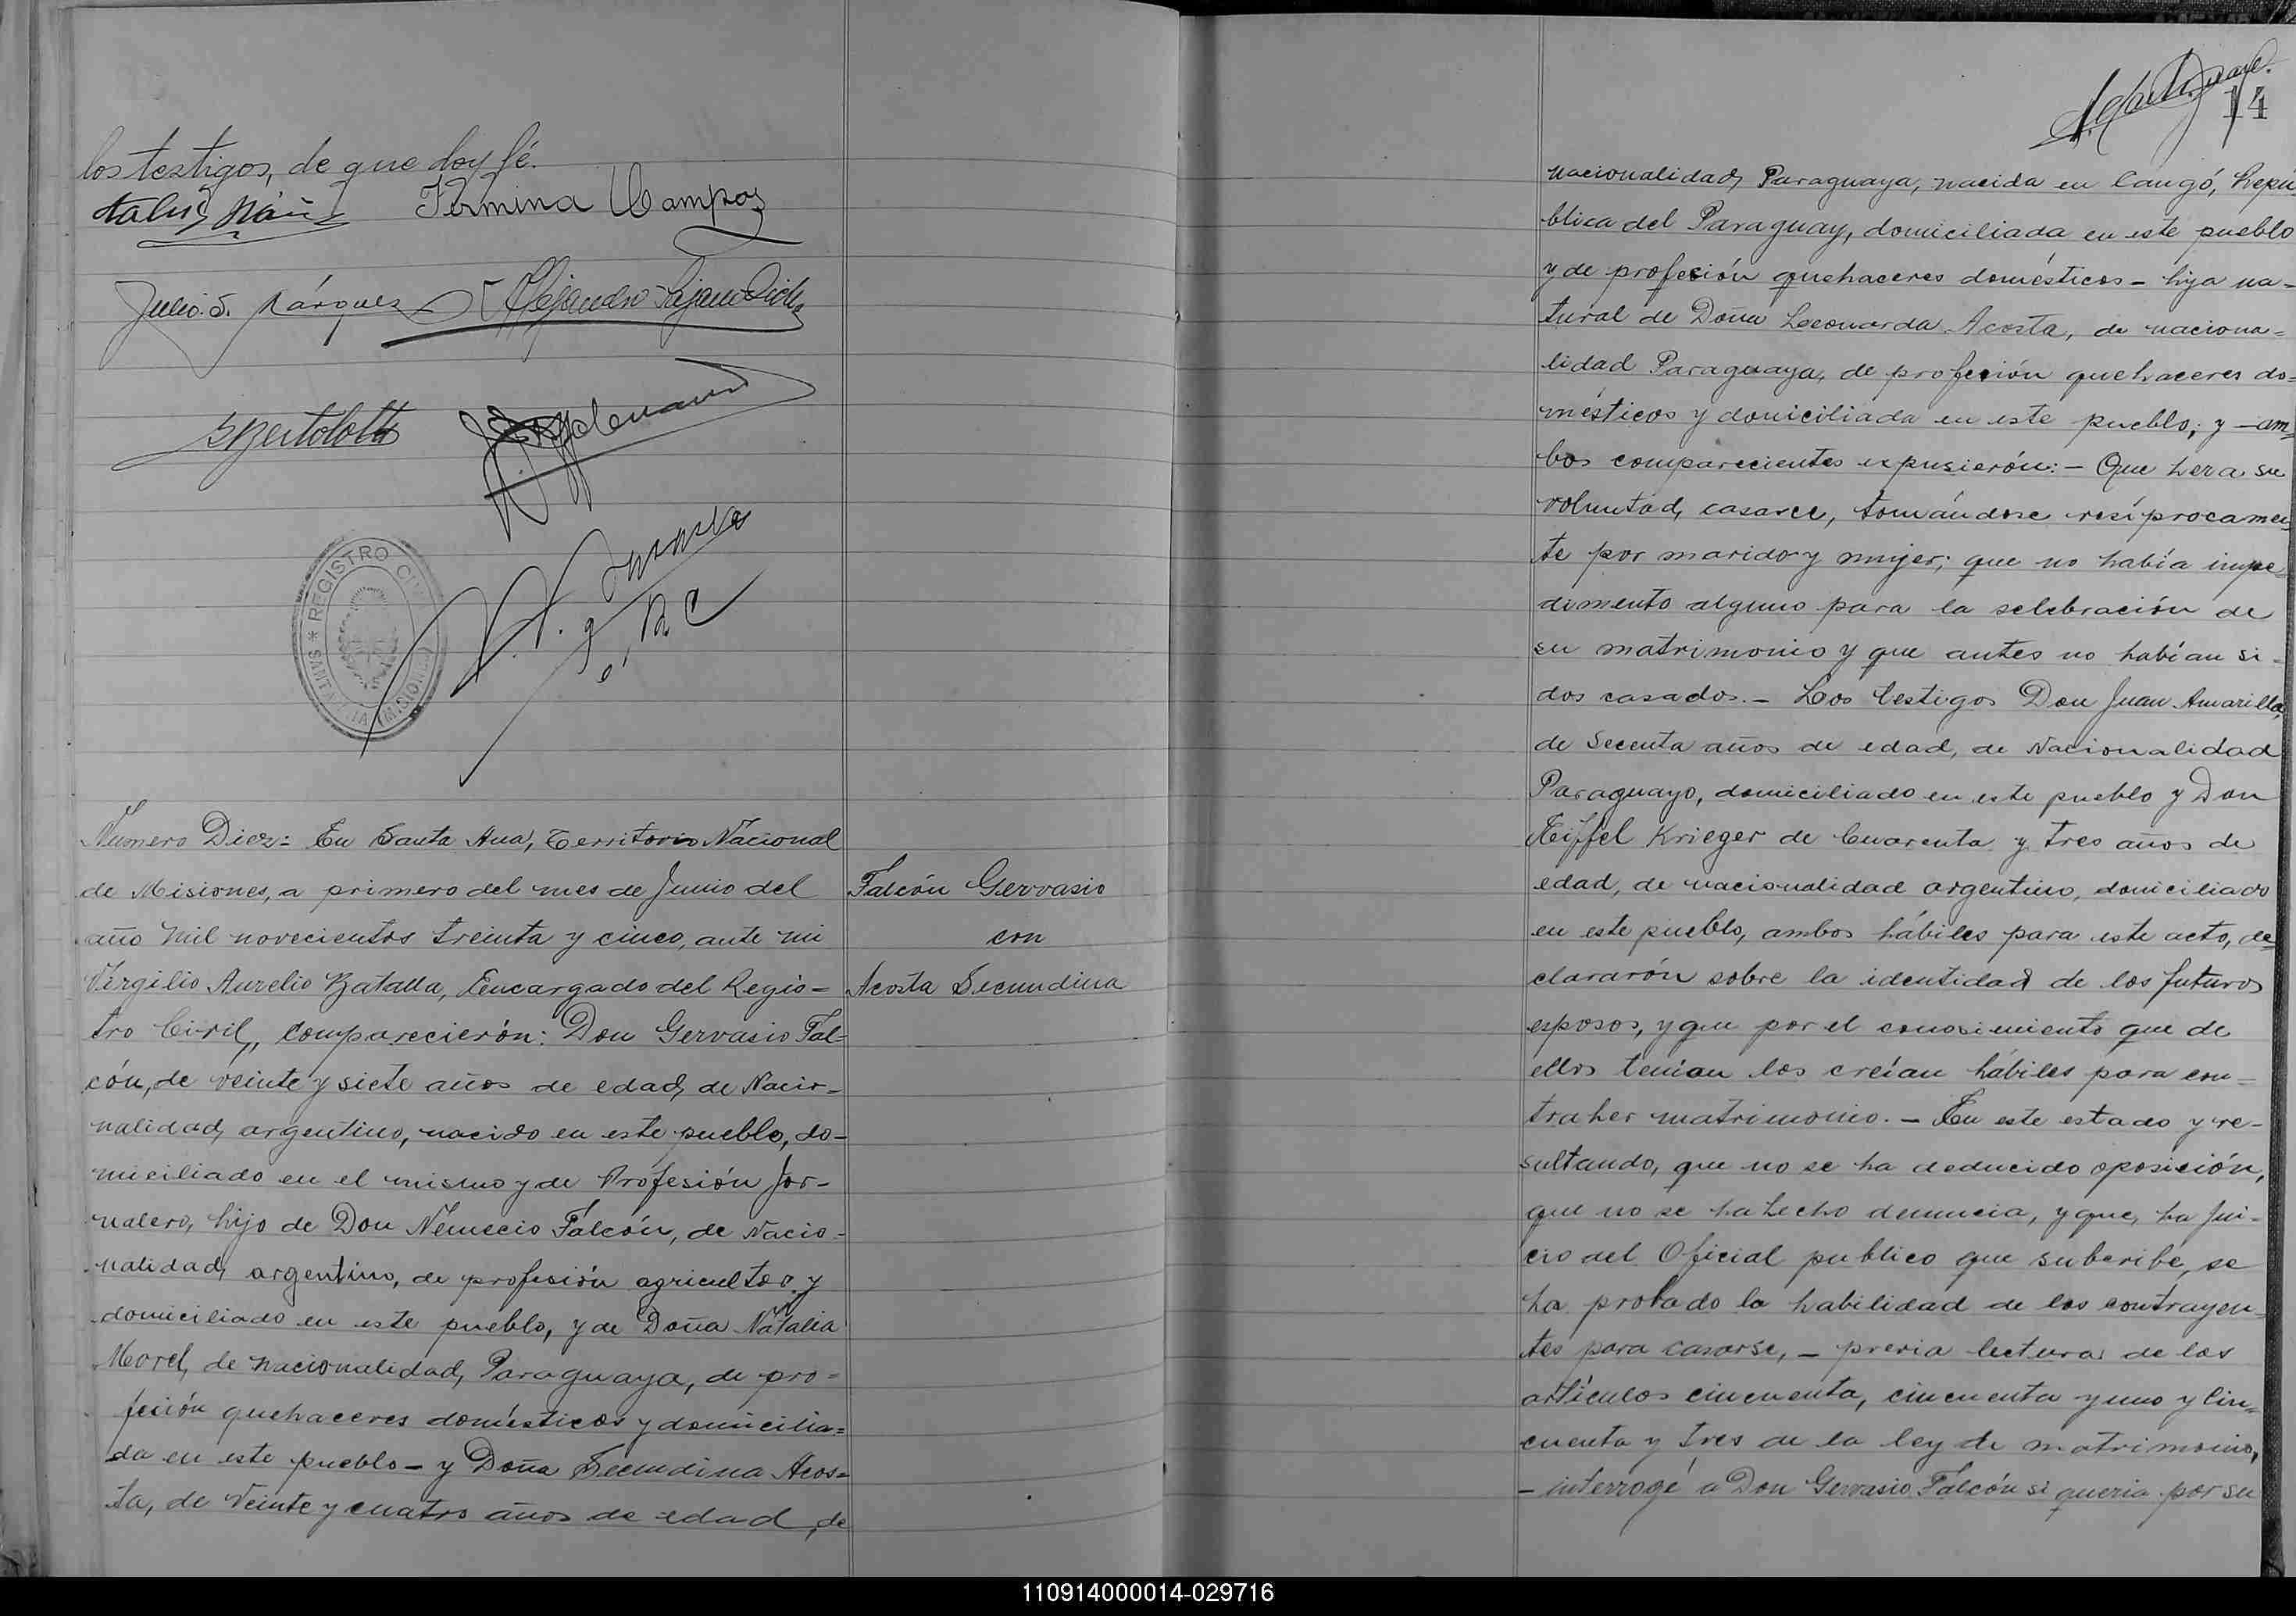 los testigos, de que doy fé.
Fermina Campos
Julio S. Márquez
SBertolotti
REGISTRO CIVIL
SANTA ANA (MISIONES)
Número Diez: En Santa Ana, Territorio Nacional
de Misiones, a primero del mes de Junio del
año mil novecientos treinta y cinco, ante mi
Virgilio Aurelio Batalla, Encargado del Regis=
tro Civil, comparecierón: Don Gervasio Fal=
cón, de veinte y siete años de edad, de Nacio-
nalidad, argentino, nacido en este pueblo, do-
miciliado en el mismo y de Profesión Jor-
nalero, hijo de Don Nemecio Falcón, de Nacio-
nalidad, argentino, de profesión agricultor y
domiciliado en este pueblo, y de Doña Natalia
Morel, de nacionalidad, Paraguaya, de pro=
feción quehaceres domésticos y domicilia=
da en este pueblo - y Doña Secundina Acos=
ta, de Veinte y cuatro años de edad, de
Falcón Gervasio
con
Acosta Secundina
14
nacionalidad, Paraguaya, nacida en Caugó, Repú
blica del Paraguay, domiciliada en este pueblo
y de profesión quehaceres domésticos - hija na-
tural de Doña Leonarda Acosta, de naciona=
lidad Paraguaya, de profesión quehaceres do-
mésticos y domiciliada en este pueblo; y - am
bos comparecientes expusierón: - Que hera su
voluntad, casarce, tomándose resíprocamen
te por marido y mujer; que no había impe-
dimento alguno para la selebración de
su matrimonio y que antes no habían si-
dos casados. - Los testigos Don Juan Amarilla,
de Secenta años de edad, de Nacionalidad
Paraguayo, domiciliado en este pueblo y Don
Eiffel Krieger de Cuarenta y tres años de
edad, de nacionalidad argentino, domiciliado
en este pueblo, ambos hábiles para este acto, de
clararón sobre la identidad de los futuros
esposos, y que por el conosimiento que de
ellos tenían los creían hábiles para con-
traher matrimonio. - En este estado y re-
sultando, que no se ha deducido oposición,
que no se ha hecho denuncia, y que, ha jui-
cio del Oficial publico que subcribe, se
ha probado la habilidad de los contrayen-
tes para casarse, - previa lectura de los
artículos cincuenta, cincuenta y uno y Cin-
cuenta y tres de la ley de matrimonio,
- interrogé a Don Gervasio Falcón si queria por su
110914000014-029716